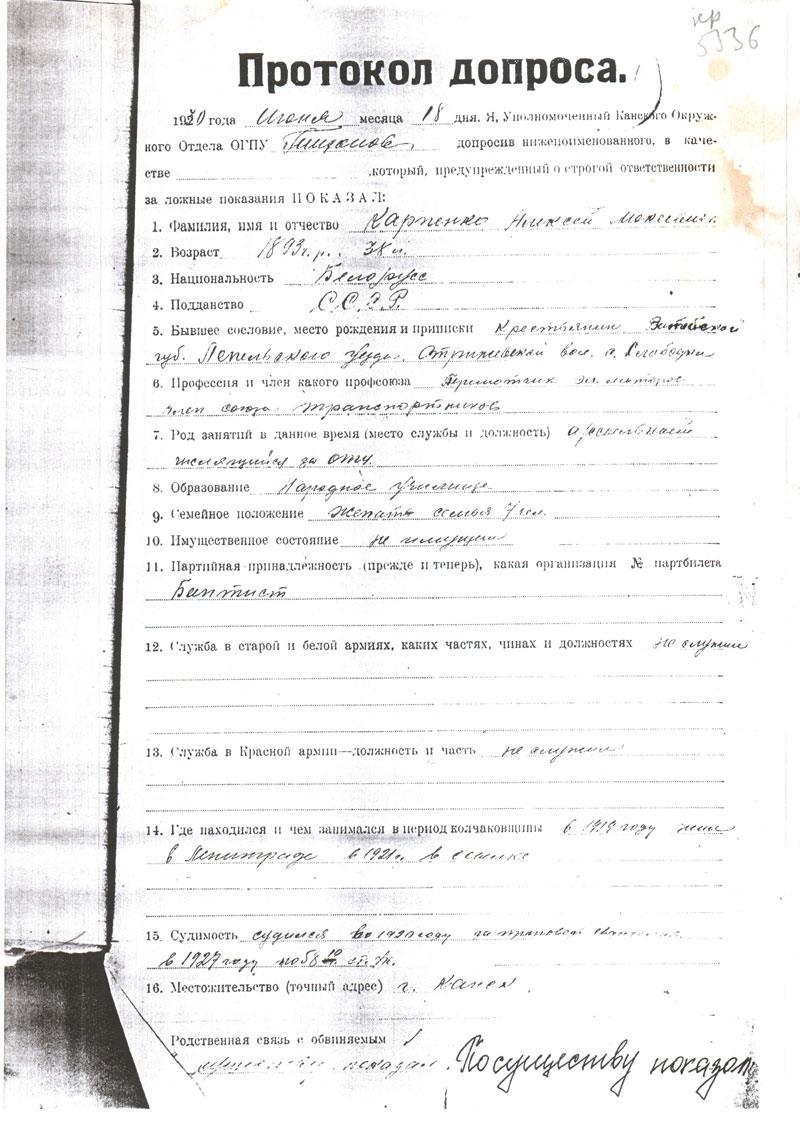 кр
5336
Протокол допроса.
1930 года Июня месяца 18 дня. Я, Уполномоченный Канского Окруж-
ного Отдела ОГПУ допросив нижепоименованного, в каче-
стве ,который, предупрежденный о строгой ответственности
за ложные показания ПОКАЗАЛ:
1. Фамилия, имя и отчество Карпенко Алексей Моисеевич
2. Возраст 1893 г.р.,
3. Национальность Белорусс
4. Подданство С.С.С.Р.
5. Бывшее сословие, место рождения и приписки Крестьянин Витебской
губ. Лепельского уезда. вол. д. Слободка
6. Профессия и член какого профсоюза эл. моторов
член союза транспортников
7. Род занятий в данное время (место службы и должность)
числящийся за ОГПУ
8. Образование Народное училище
9. Семейное положение Женат семья 7 чел.
10. Имущественное состояние не имущий
11. Партийная принадлежность (прежде и теперь), какая организация № партбилета
Баптист
12. Служба в старой и белой армиях, каких частях, чинах и должностях не служил
13. Служба в Красной армии—должность и часть не служил
14. Где находился и чем занимался в период колчаковщины в 1919 году жил
в Ленинграде в 1921 г. в ссылке
15. Судимость судился в 1920 году за
в 1927 году по 58 10 ст. Ук.
16. Местожительство (точный адрес) г. Канск
Родственная связь с обвиняемым
показал. По существу показал